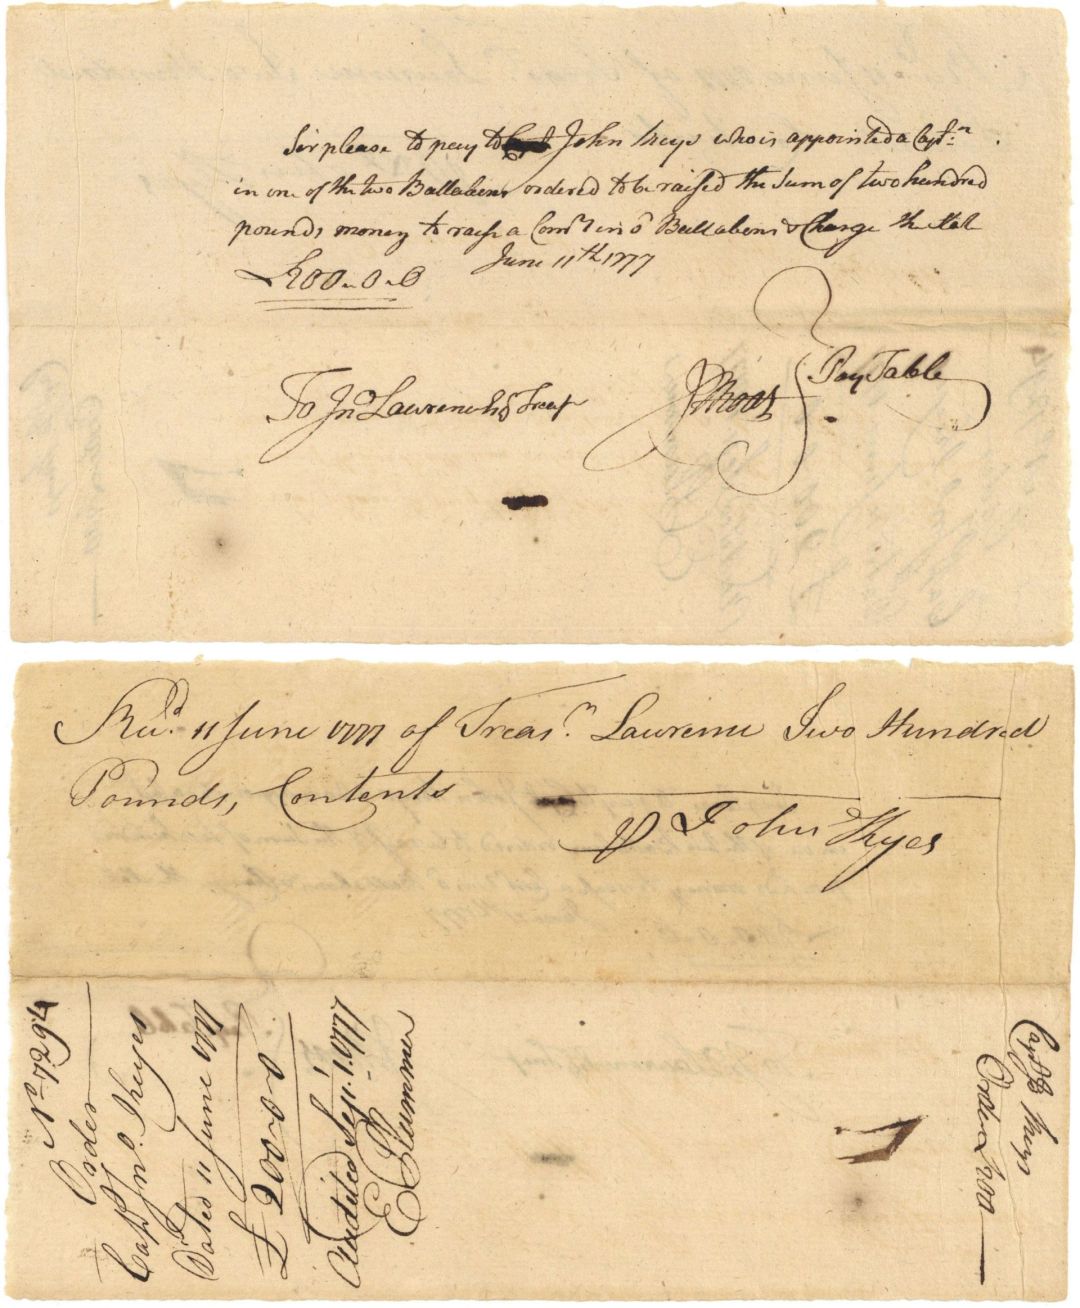 Sir please to pay to John Keyes who is appointed a Capt.n
in one of the two Battalions ordered to be raised the Sum of two hundred
pounds money to raise a Com.y in s.d Battalions & Charge the State
June 11th 1777
£200-0-0
To Jn.o Lawrence Esq Treasr
Pay Table
Rec.d 11 June 1777 of Treas.r Lawrence Two Hundred
Pounds, Contents
John Keyes
No 7294
Order
Capt Jn.o Keyes
Dated 11 June 1777
£200-0-0
Audited Sep.r 1. 1777
E Plummer
Capt Keyes
Order £200